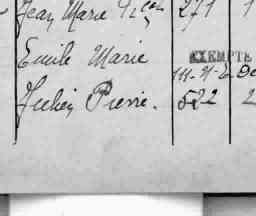 Jean Marie 271 1
Emile Marie EXEMPTE
Julien Pierre. 522 2